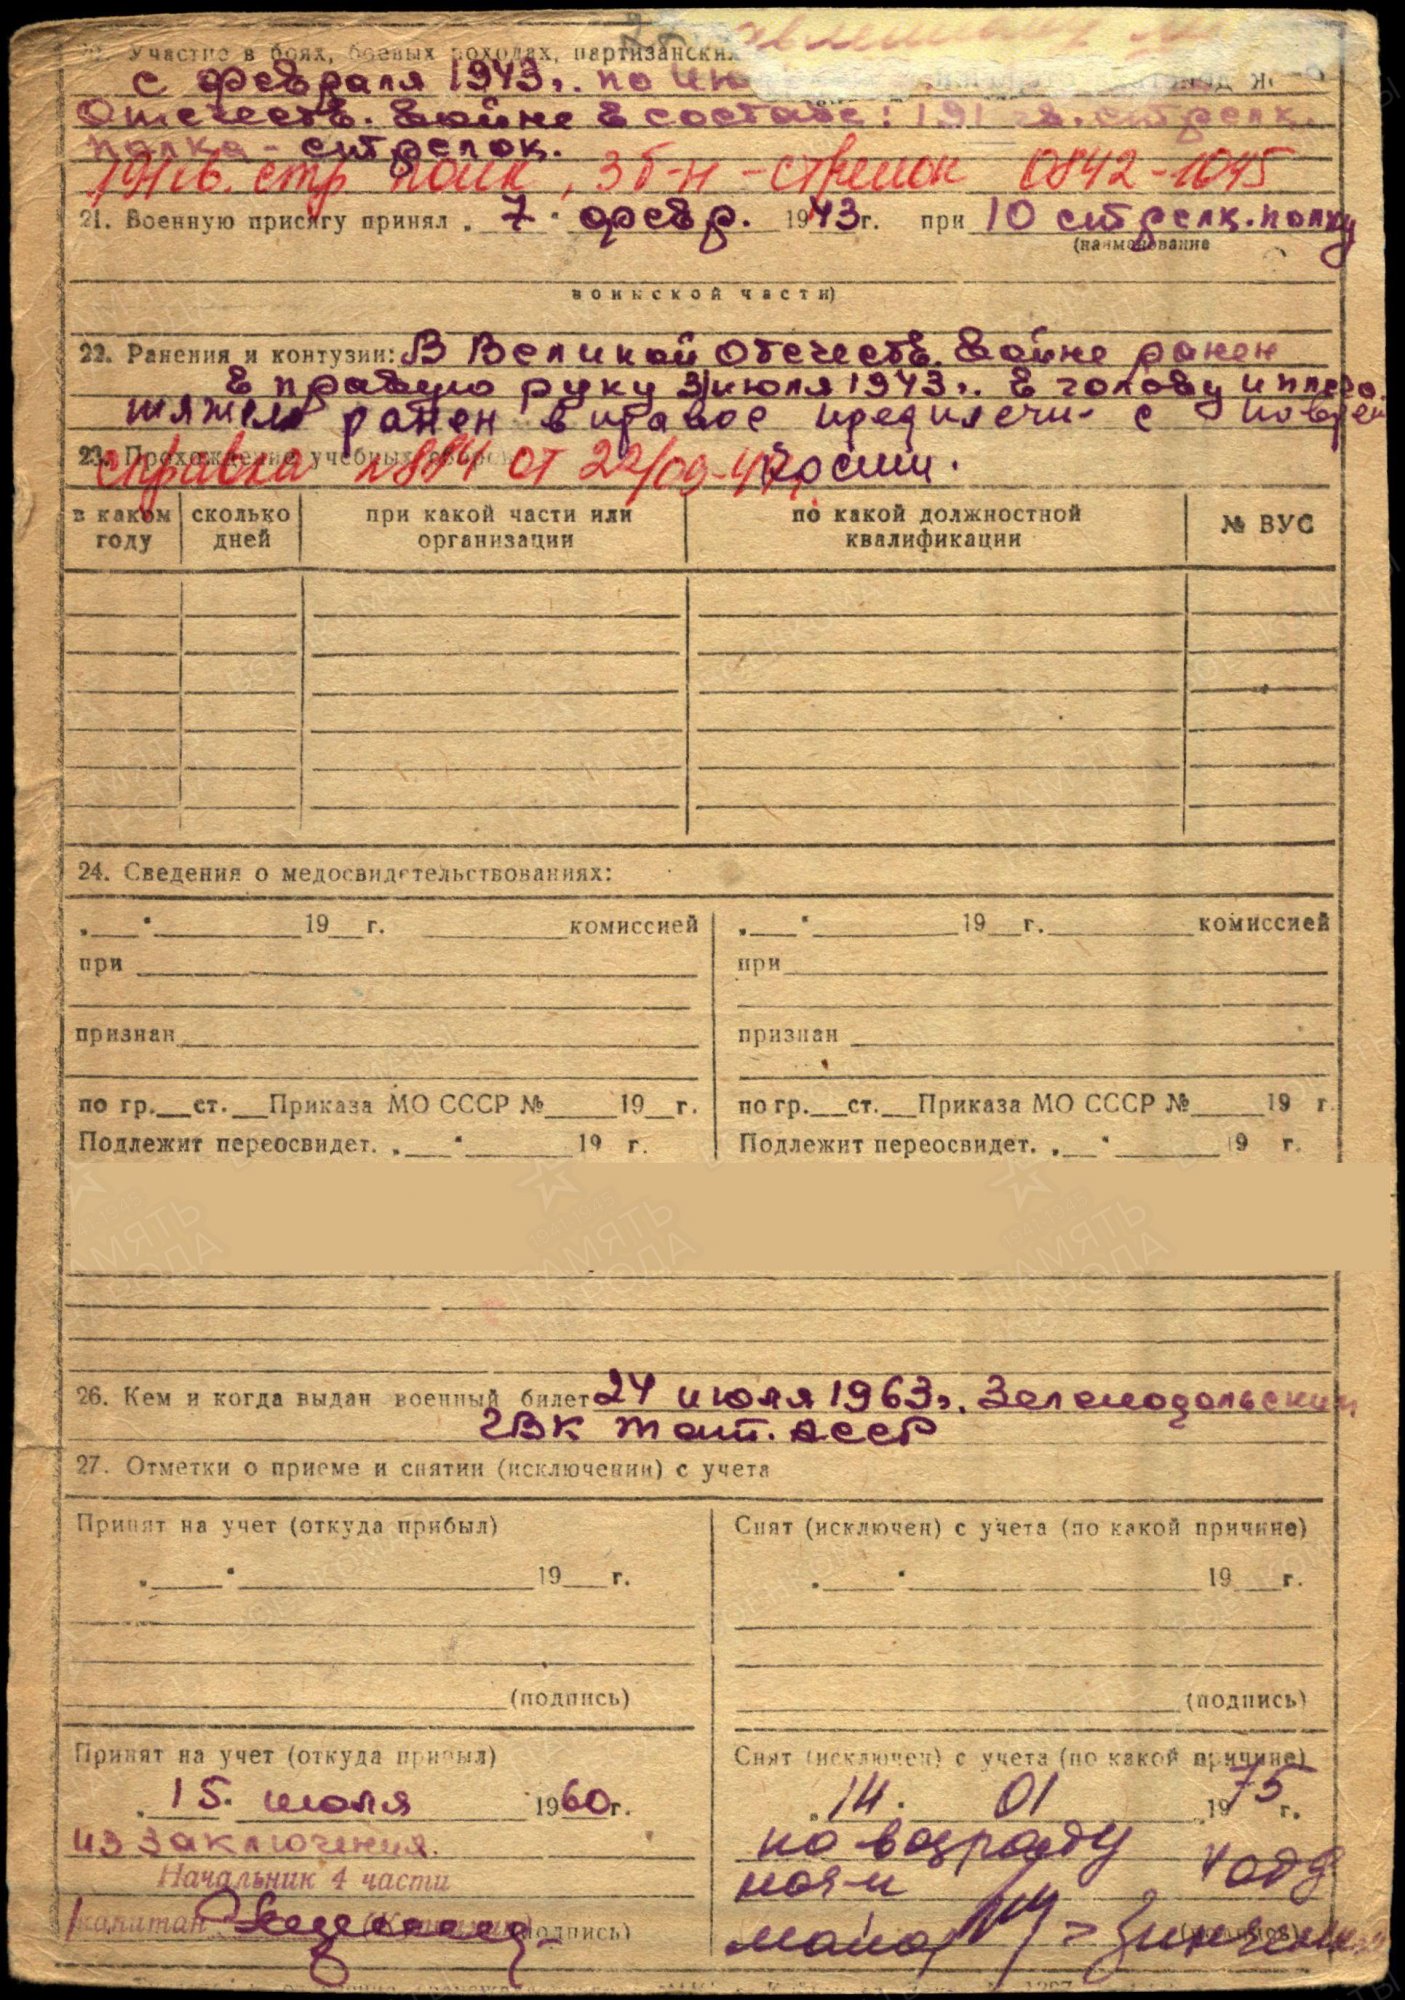 Участие в боях, боевых походах, партизанских
с февраля 1943г. по
Отечеств. войне в составе: 191 гв. стрелк.
полка - стрелок.
191 гв. стр полк, 3 б-н - стрелок 0842-1045
21. Военную присягу принял „ 7 “ февр. 1943г. при 10 стрелк. полку
(наименование
воинской части)
22. Ранения и контузии: В Великой Отечеств. войне ранен
в правую руку 31 июля 1943г. в голову и плечо.
тяжело ранен в правое предплечие с повреж
23. Прохождение учебных сборов
справка №884 от 22/09-44г. кости.
в каком году
сколько дней
при какой части или организации
по какой должностной квалификации
№ ВУС
24. Сведения о медосвидетельствованиях:
„ “ 19 г. комиссией
при
признан
по гр. ст. Приказа МО СССР № 19 г.
Подлежит переосвидет. „ “ 19 г.
„ “ 19 г. комиссией
при
признан
по гр. ст. Приказа МО СССР № 19 г.
Подлежит переосвидет. „ “ 19 г.
26. Кем и когда выдан военный билет 24 июля 1963г. Зеленодольский
ГВК Тат. АССР
27. Отметки о приеме и снятии (исключении) с учета
Принят на учет (откуда прибыл)
„ “ 19 г.
(подпись)
Снят (исключен) с учета (по какой причине)
„ “ 19 г.
(подпись)
Принят на учет (откуда прибыл)
„ 15. июля 1960г.
из заключения.
Начальник 4 части
капитан (подпись)
Снят (исключен) с учета (по какой причине)
„ 14. 01 1975 г.
по возрасту
майор (подпись)
ПАМЯТЬ НАРОДА
1941-1945
ВОЕНКОМАТЫ